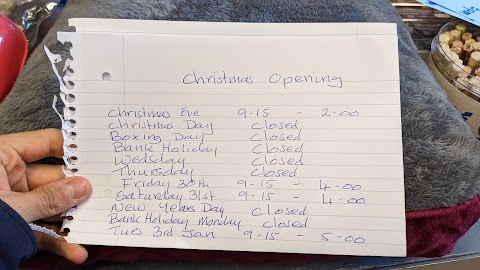 Christmas Opening
Christmas Eve 9-15 - 2-00
Christmas Day Closed
Boxing Day Closed
Bank Holiday Closed
Wedsday Closed
Thursday Closed
Friday 30th 9-15 - 4-00
Saturday 31st 9-15 - 4-00
New Years Day Closed
Bank Holiday Monday Closed
Tues 3rd Jan 9-15 - 5-00